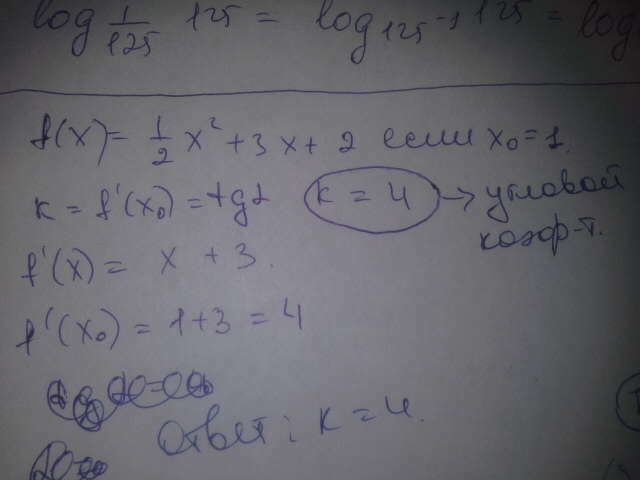 log 1/125 125 = log 125⁻¹ 125 = log
f(x) = 1/2 x² + 3x + 2 если x₀ = 1.
k = f'(x₀) = tgα k = 4 → угловой
коэф-т.
f'(x) = x + 3.
f'(x₀) = 1 + 3 = 4
Ответ: k = 4.